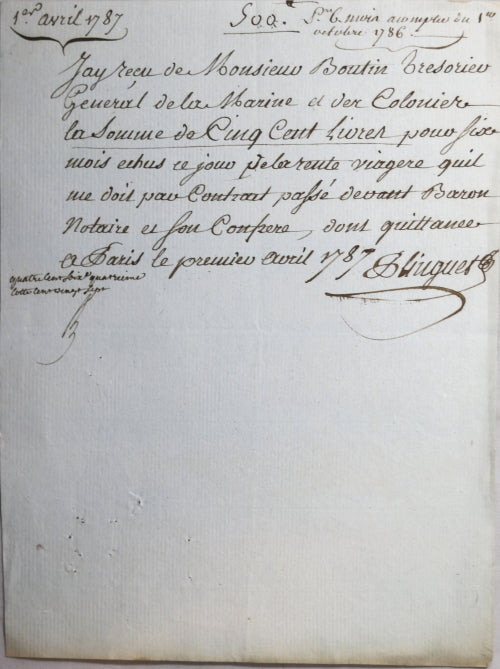 1er avril 1787
500. Pr 6. mois a compter du 1er
octobre 1786.
Jay reçu de Monsieur Boutin Tresorier
General de la Marine et des Colonies
la Somme de Cinq Cent Livres pour six
mois echus ce jour de la rente viagere quil
me doit par Contrat passé devant Baron
Notaire et son Confrere, dont quittance
a Paris le premier avril 1787 Dlinguet
quatre Cent soixte quatrieme
Cotte Cent vingt sept